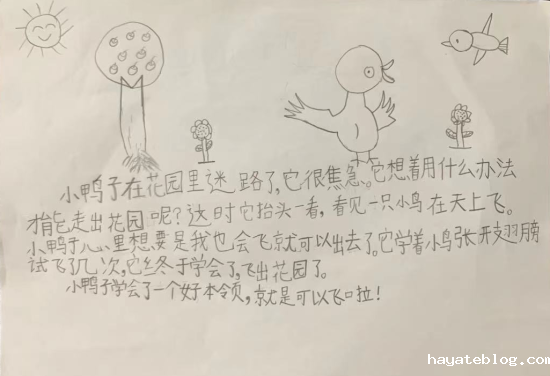 小鸭子在花园里迷路了,它很焦急。它想着用什么办法
才能走出花园呢?这时它抬头一看,看见一只小鸟在天上飞。
小鸭子心里想要是我也会飞就可以出去了。它学着小鸟张开翅膀
试飞了几次,它终于学会了,飞出花园了。
小鸭子学会了一个好本领,就是可以飞啦!
hayateblog.com